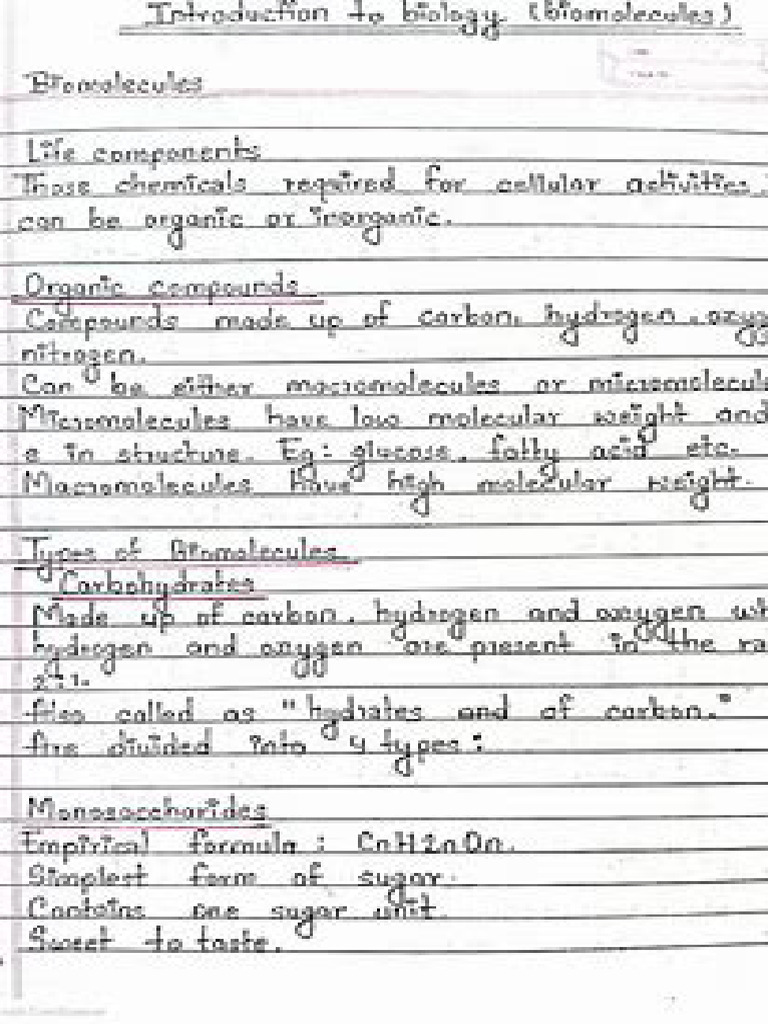 Introduction to biology (biomolecules)
Biomolecules
Life components
Those chemicals required for cellular activities.
can be organic or inorganic.
Organic compounds
Compounds made up of carbon, hydrogen, oxyg
nitrogen.
Can be either macromolecules or micromolecule
Micromolecules have low molecular weight and
e in structure. Eg: glucose, fatty acid etc.
Macromolecules have high molecular weight.
Types of Biomolecules
Carbohydrates
Made up of carbon, hydrogen and oxygen wh
hydrogen and oxygen are present in the ra
2:1.
Also called as "hydrates and of carbon."
Are divided into 4 types:
Monosaccharides
Empirical formula: CnH2nOn.
Simplest form of sugar.
Contains one sugar unit.
Sweet to taste.